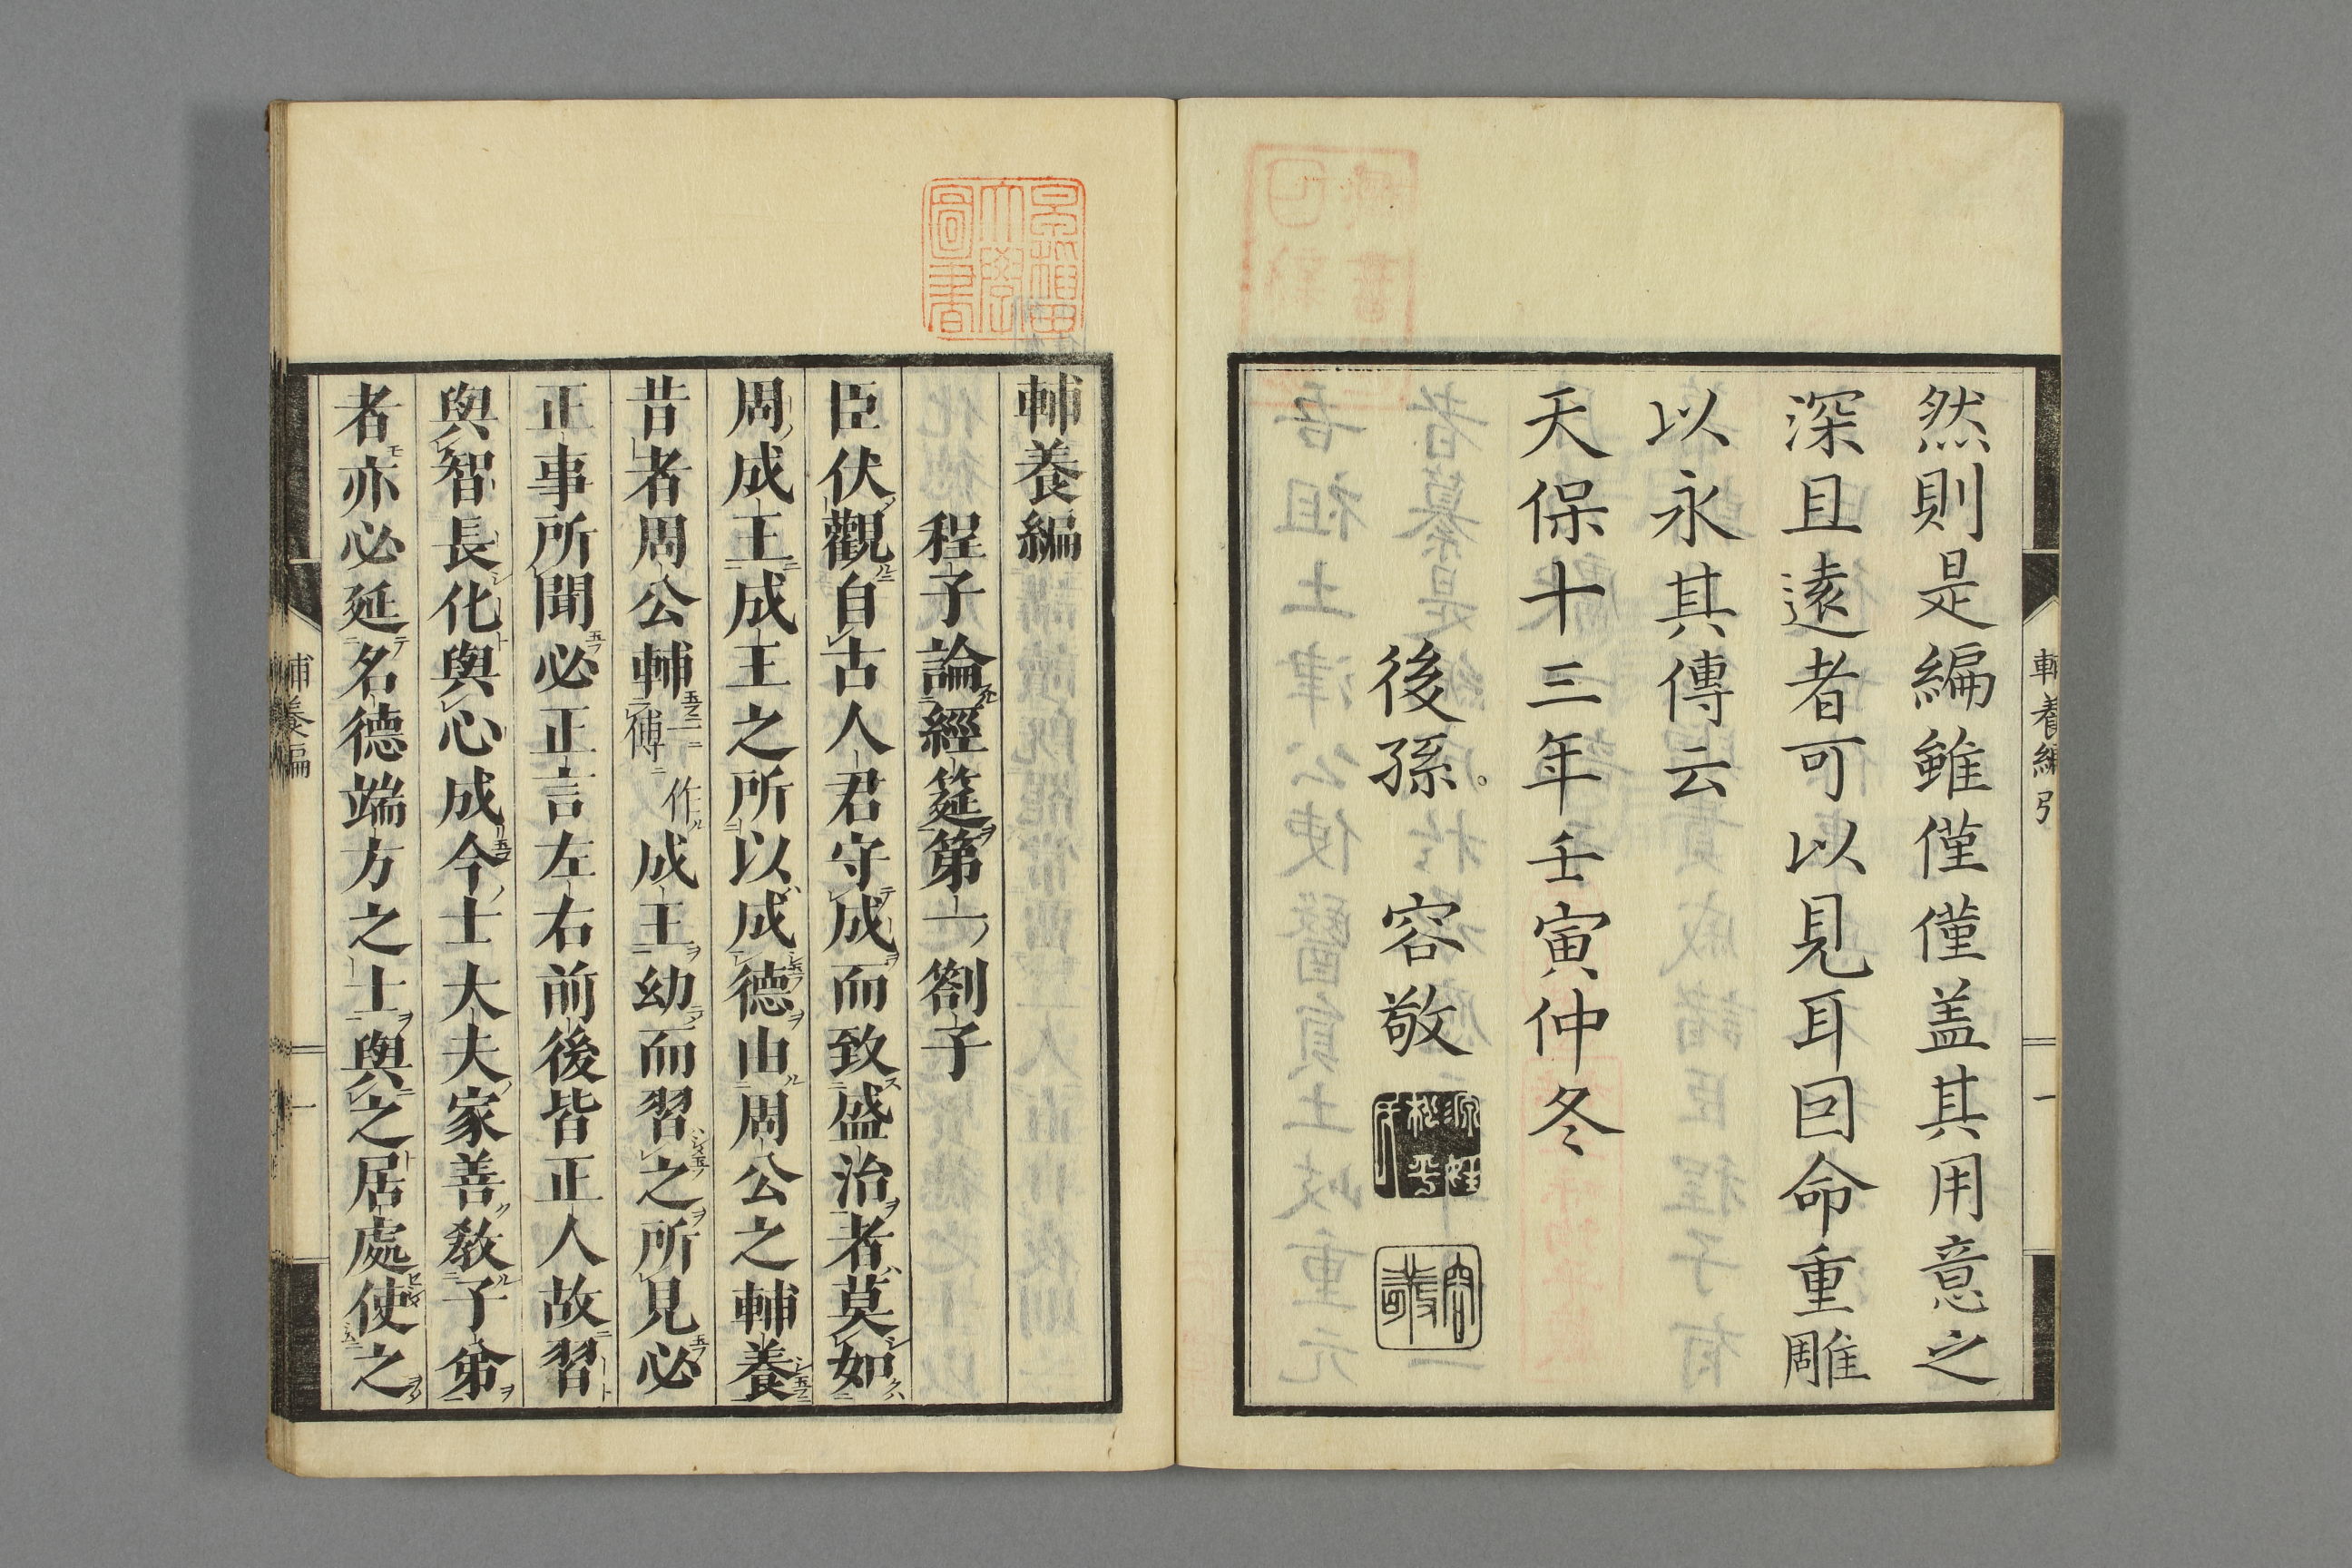 輔養編引
一
然則是編雖僅僅盖其用意之
深且遠者可以見耳囙命重雕
以永其傳云
天保十三年壬寅仲冬
後孫 容敬
容敬
早稲田大學圖書
輔養編
程子論經筵第一劄子
臣伏觀自古人君守成而致盛治者莫如
周成王成王之所以成德由周公之輔養
昔者周公輔傅作成王幼而習之所見必
正事所聞必正言左右前後皆正人故習
與智長化與心成今士大夫家善敎子弟
者亦必延名德端方之士與之居處使之
輔養編
一